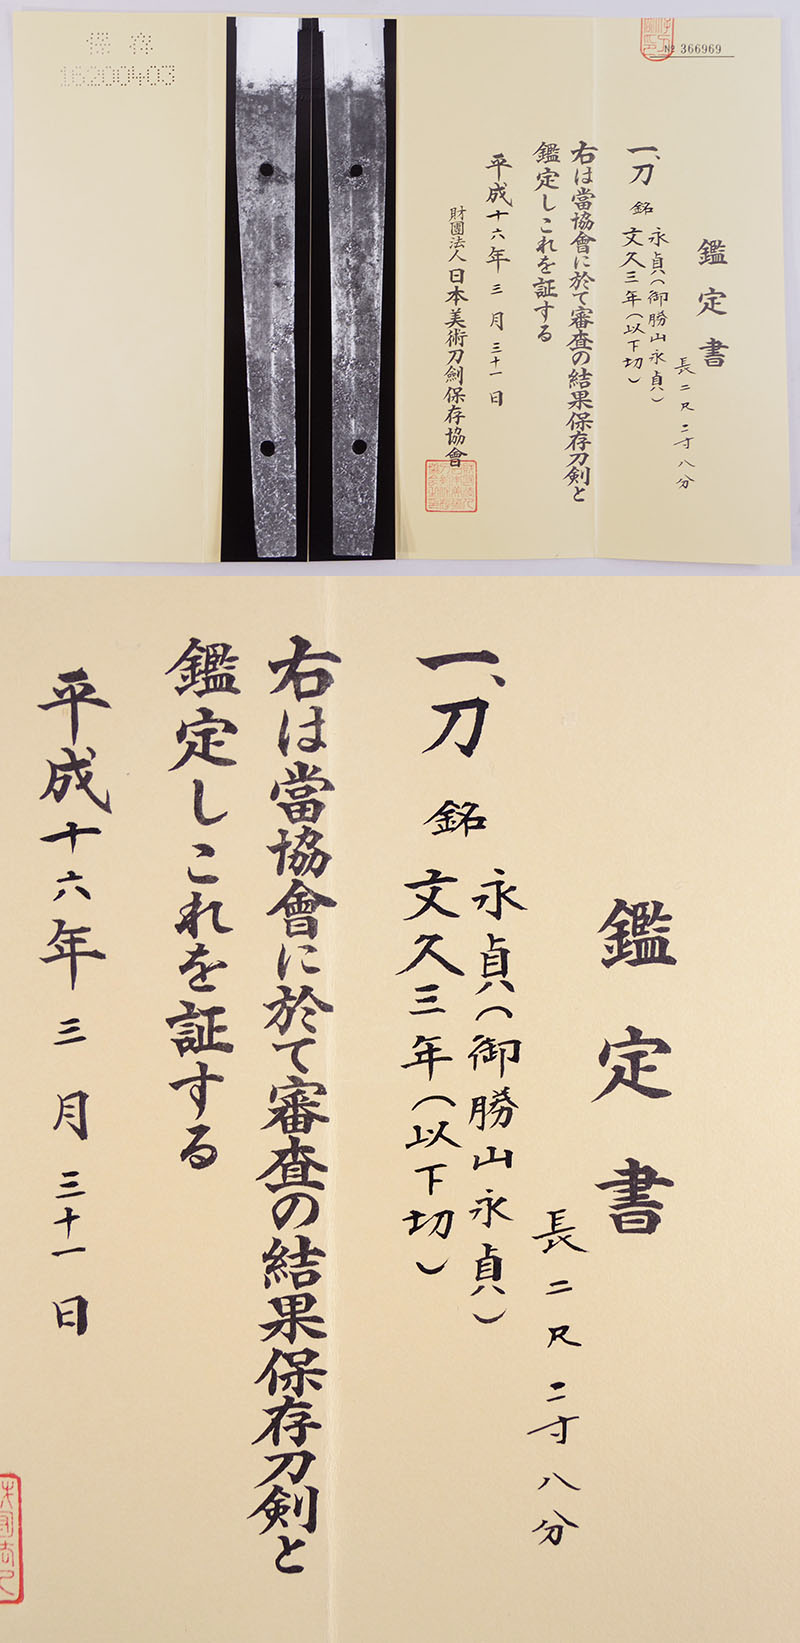 № 366969
鑑定書
長二尺二寸八分
一、刀 銘
永貞(御勝山永貞)
文久三年(以下切)
右は當協會に於て審査の結果保存刀剣と
鑑定しこれを証する
平成十六年三月三十一日
財團法人日本美術刀劍保存協會
保存
16200403
鑑定書
長二尺二寸八分
一、刀 銘
永貞(御勝山永貞)
文久三年(以下切)
右は當協會に於て審査の結果保存刀剣と
鑑定しこれを証する
平成十六年三月三十一日